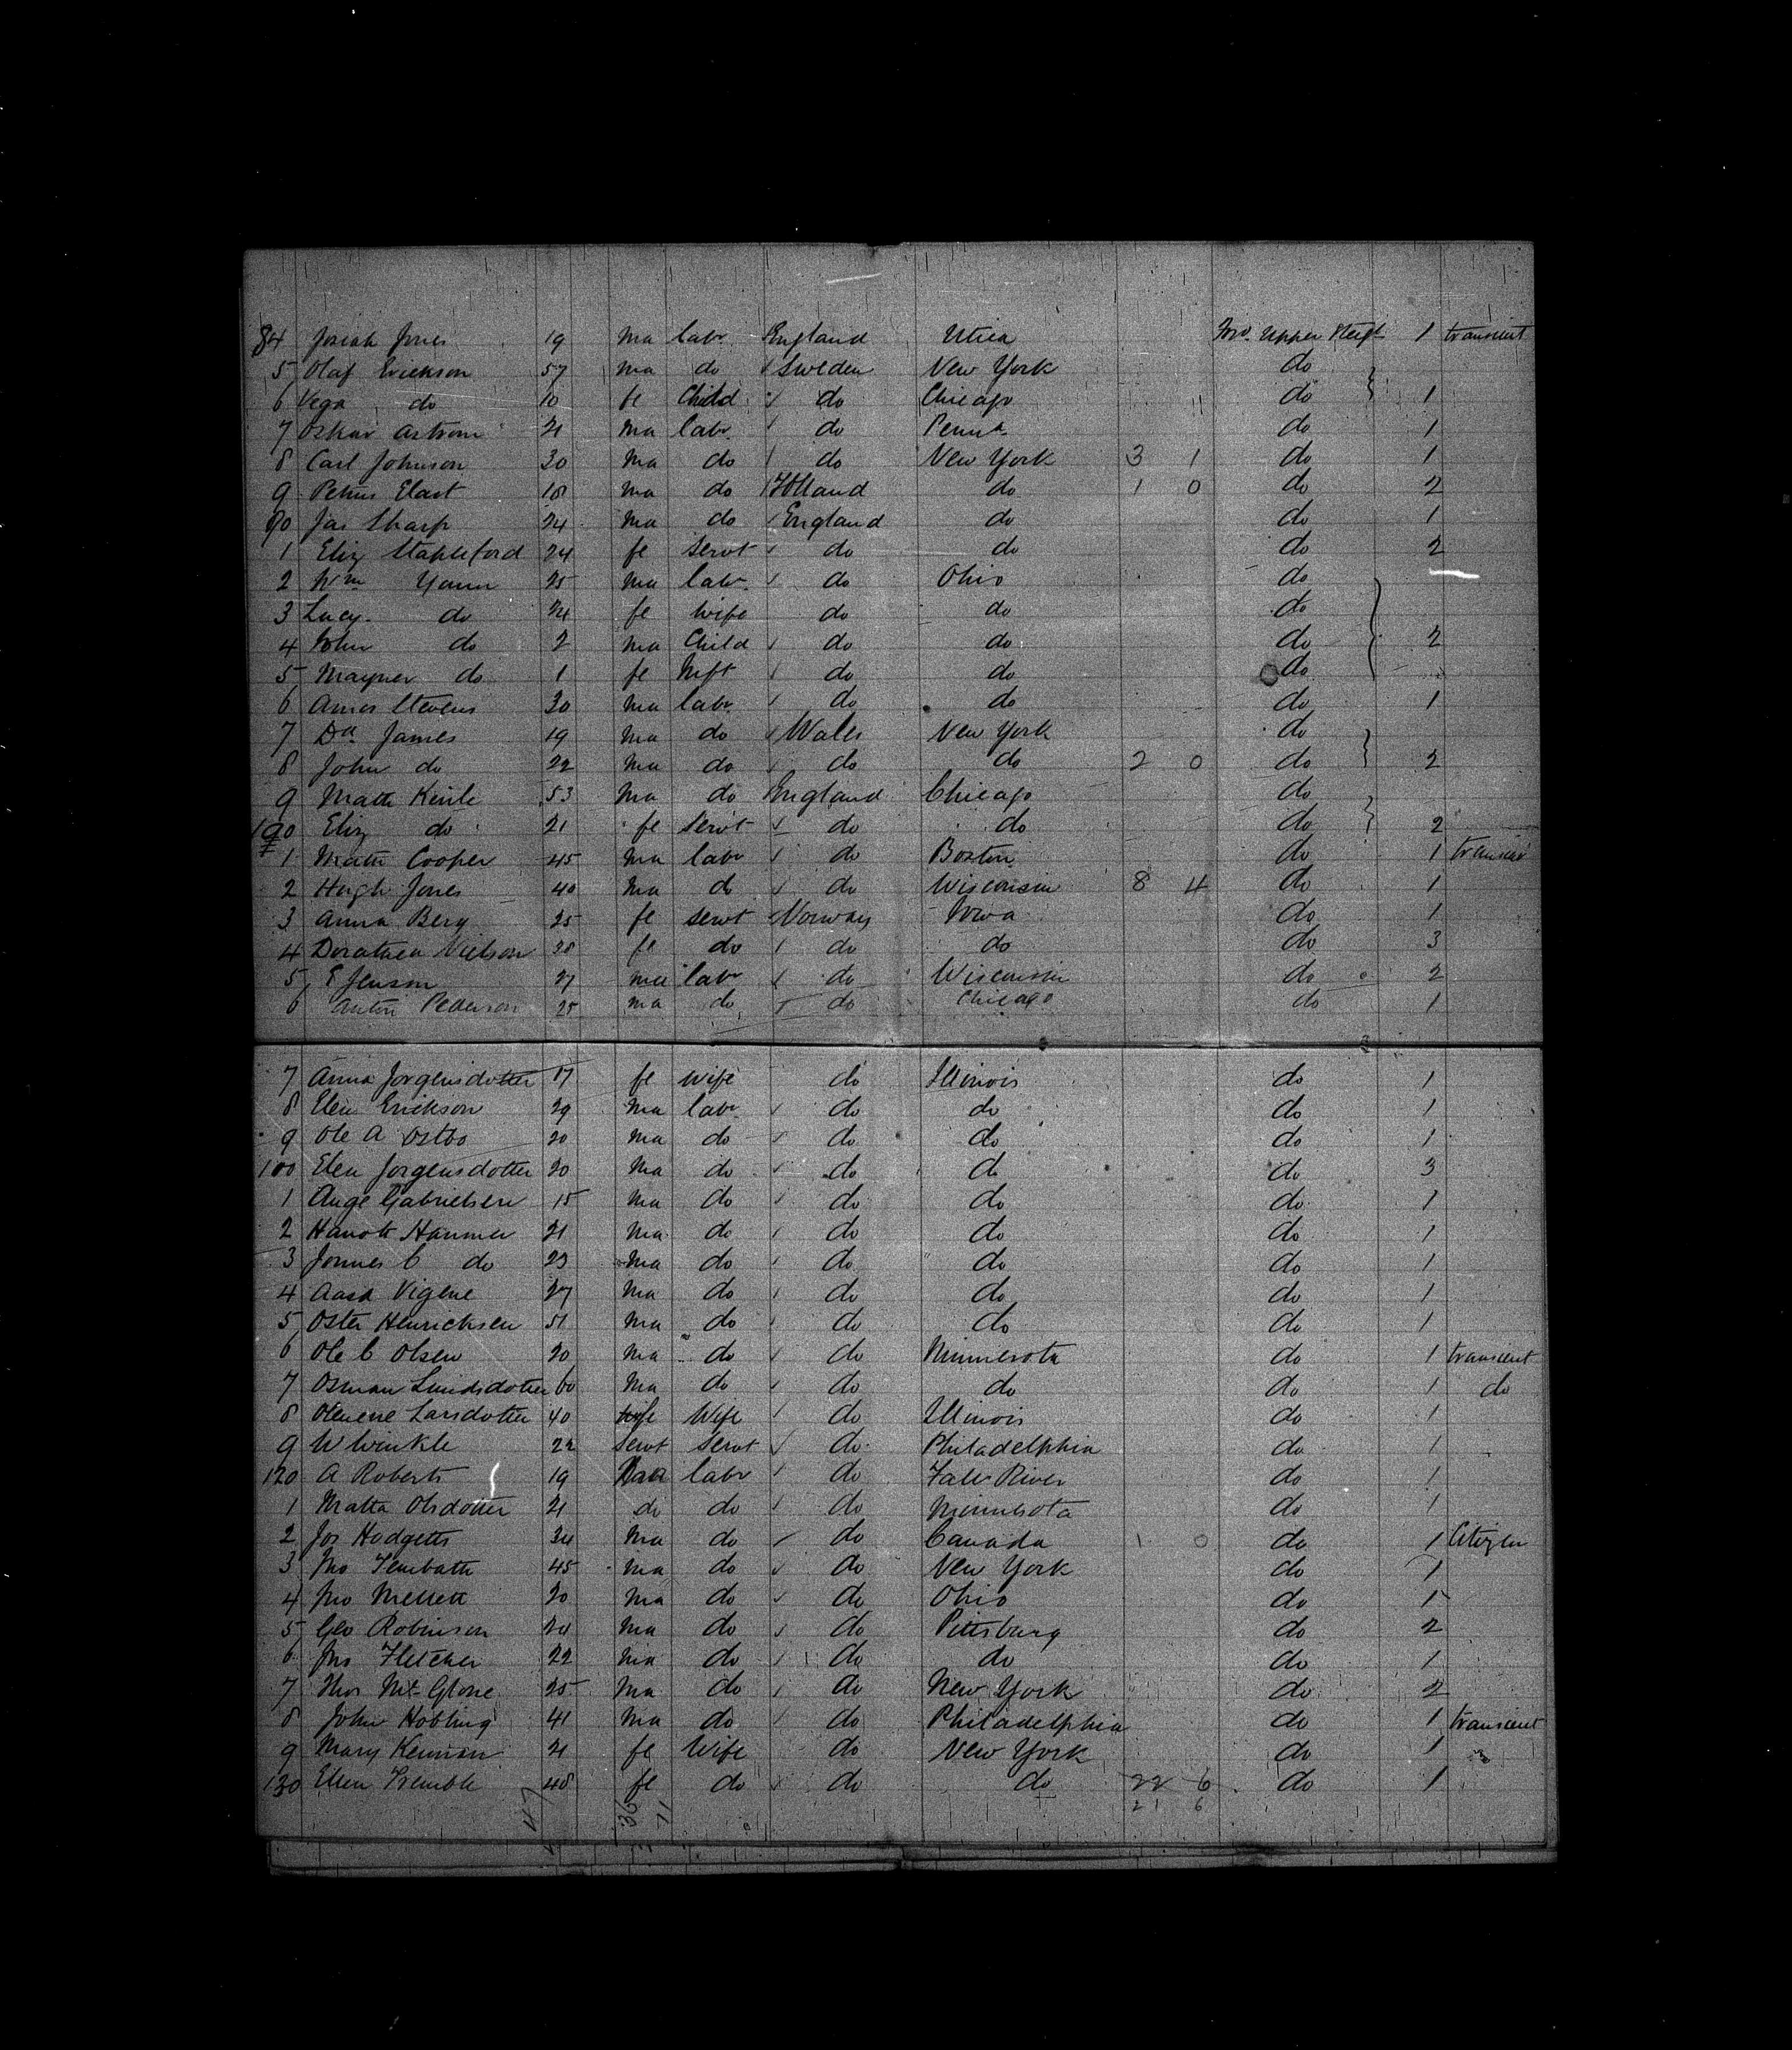 84 Josiah Jones 19 ma labr England Utica Fwd. Upper Steege 1 transient
5 Olaf Erickson 57 ma do Sweden New York do
6 Vega do 10 fe Child do Chicago do 1
7 Oskar Astrom 21 ma labr do Penna do 1
8 Carl Johnson 30 ma do do New York 3 1 do 1
9 Petrus Elast 18 ma do Holland do 1 0 do 2
90 Jas Sharp 24 ma do England do do 1
1 Eliz Stapleford 24 fe Servt do do do 2
2 Wm Yann 25 ma labr do Ohio do
3 Lucy do 24 fe Wife do do do
4 John do 2 ma Child do do do 2
5 Mayner do 1 fe Inft do do do
6 Amos Stevens 30 ma labr do do do 1
7 Dd James 19 ma do Wales New York do
8 John do 22 ma do do do 2 0 do 2
9 Matt 53 ma do England Chicago do
100 Eliz do 21 fe Servt do do do 2
1 Matt Cooper 45 ma labr do Boston do 1 transient
2 Hugh Jones 40 ma do do Wisconsin 8 4 do 1
3 Anna Berg 25 fe servt Norway Iowa do 1
4 Dorathea Nielson 28 fe do do do do 3
5 E Jenson 27 ma labr do Wisconsin do 2
6 Anton Pederson 25 ma do do Chicago do 1
7 Anna Jorgensdotter 17 fe wife do Illinois do 1
8 Elen Erickson 29 ma labr do do do 1
9 Ole A Ostbo 20 ma do do do do 1
100 Elen Jorgensdotter 20 ma do do do do 3
1 Auge Gabrielsen 15 ma do do do do 1
2 Hammer 21 ma do do do do 1
3 C do 23 ma do do do do 1
4 Aasa Vigene 27 ma do do do do 1
5 Oster Henricksen 51 ma do do do do 1
6 Ole C Olsen 20 ma do do Minnesota do 1 transient
7 Osman 60 ma do do do do 1 do
8 Olenene Larsdotter 40 fe Wife do Illinois do 1
9 W Winkle 22 Servt Servt do Philadelphia do 1
120 A Roberts 19 ma labr do Fall River do 1
1 Matta Olsdotter 21 do do do Minnesota do 1
2 Jos Hodgetts 34 ma do do Canada 1 0 do 1 Citizen
3 Jno Tembath 45 ma do do New York do 1
4 Jno Mellett 20 ma do do Ohio do 1
5 Geo Robinson 24 ma do do Pittsburg do 2
6 Jno Fletcher 22 ma do do do do 1
7 Thos McGlone 25 ma do do New York do 2
8 John Hobling 41 ma do do Philadelphia do 1 transient
9 Mary Kennan 21 fe Wife do New York do 1
130 Ellen Tremble 48 fe do do do 22 6 do 1
21 6
47 36 11